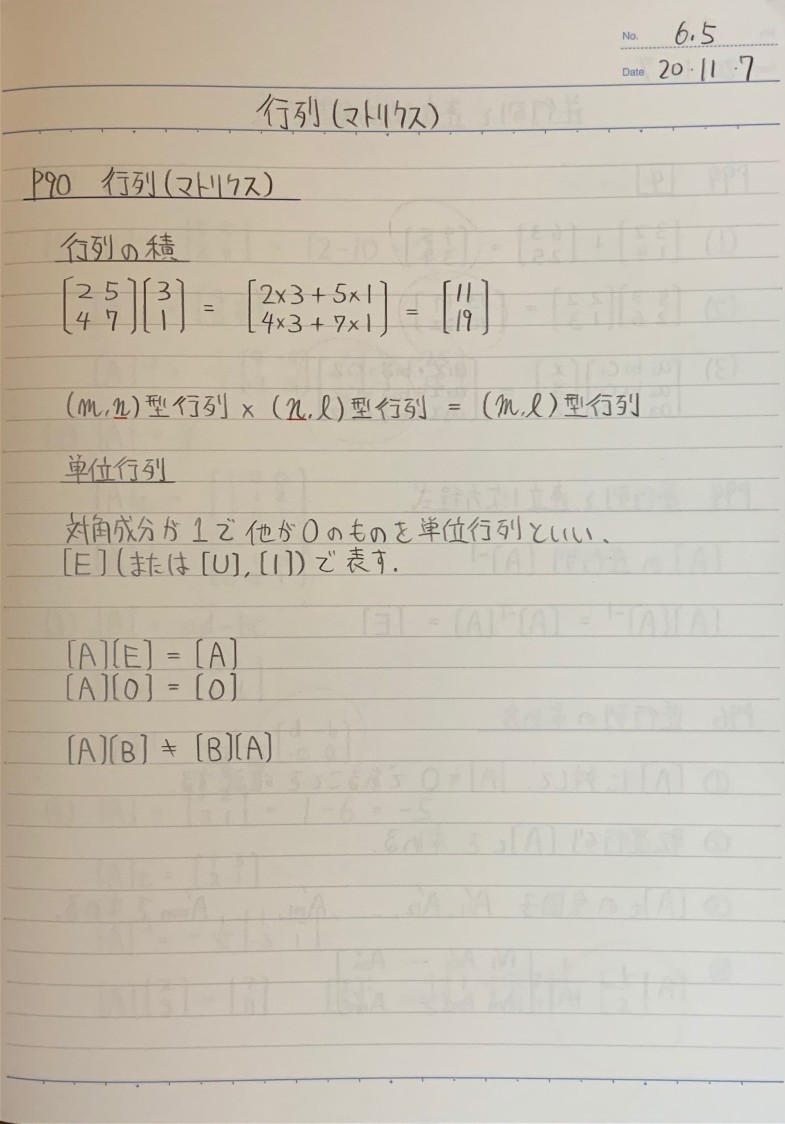 No. 6.5
Date 20・11・7
行列(マトリクス)
P90 行列(マトリクス)
行列の積
[2 5][3] = [2×3+5×1] = [11]
[4 7][1] [4×3+7×1] [19]
(m,n)型行列 × (n,l)型行列 = (m,l)型行列
単位行列
対角成分が1で他が0のものを単位行列といい、
[E](または[U],[I])で表す.
[A][E] = [A]
[A][0] = [0]
[A][B] ≠ [B][A]